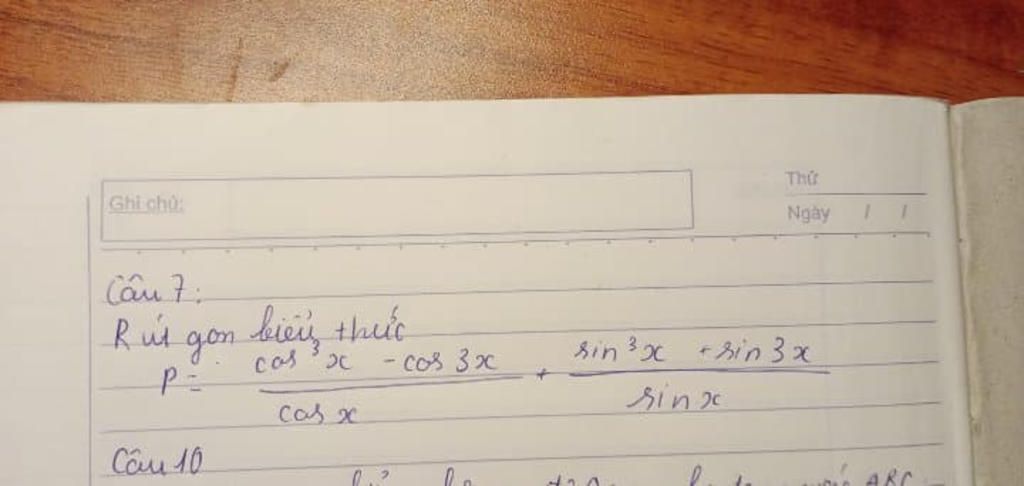 Ghi chú:
Thứ
Ngày / /
Câu 7:
Rút gọn biểu thức
P = cos³x - cos3x / cosx + sin³x + sin3x / sinx
Câu 10
ABC